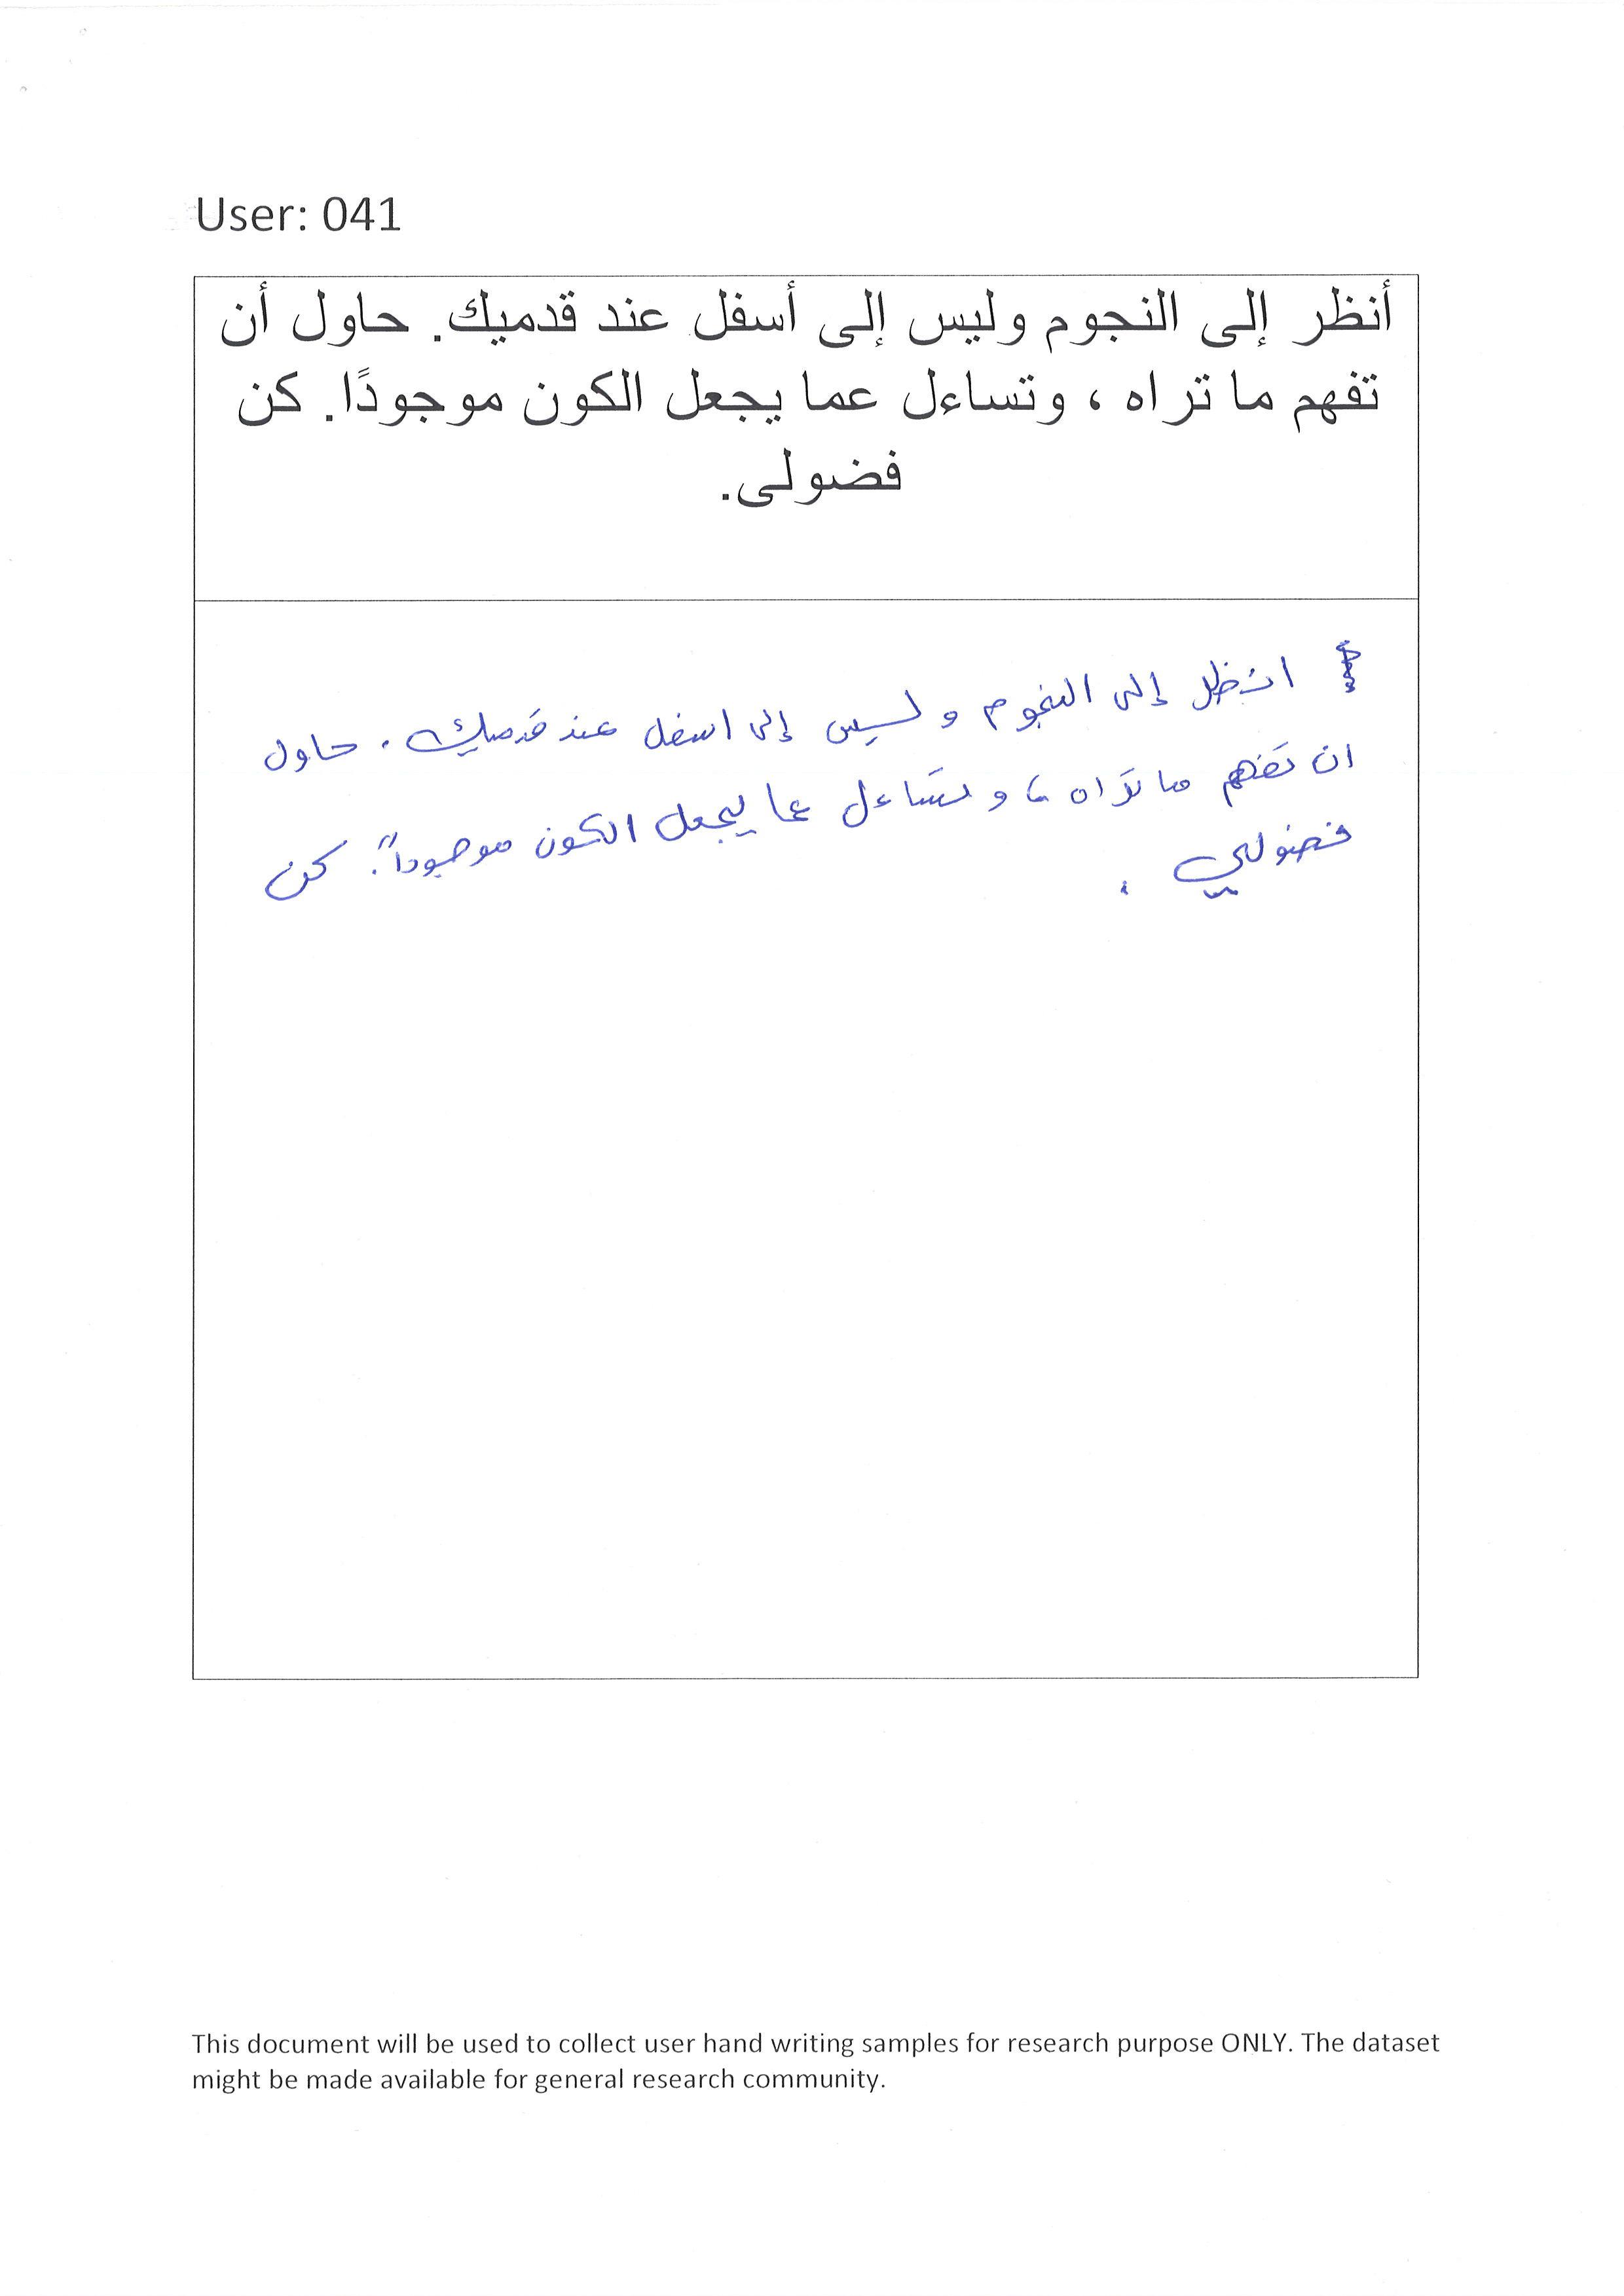 User: 041
أنظر إلى النجوم وليس إلى أسفل عند قدميك. حاول أن
تفهم ما تراه ، وتساءل عما يجعل الكون موجودًا. كن
فضولى.
انظر إلى النجوم و ليس إلى اسفل عند قدميك . حاول
ان تفهم ما تراه ، و تساءل عما يجعل الكون موجوداً. كن
فضولي .
This document will be used to collect user hand writing samples for research purpose ONLY. The dataset
might be made available for general research community.